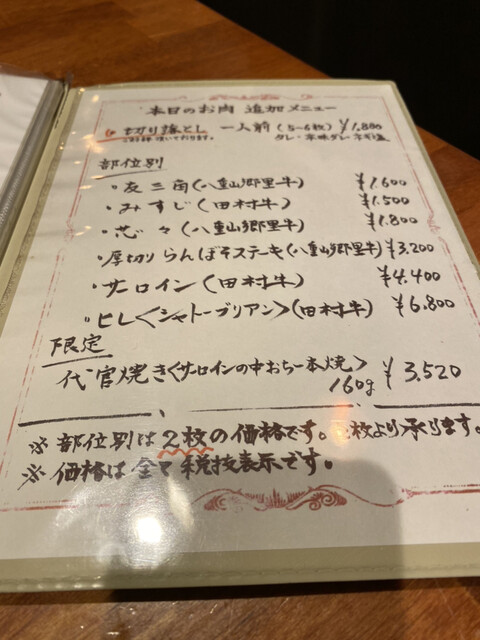 本日のお肉 追加メニュー
切り落とし 一人前 (5~6枚) ¥1,800
タレ・辛味ダレ・ネギ塩
部位別
・友三角(八重山郷里牛) ¥1.600
・みすじ(田村牛) ¥1.500
・芯々(八重山郷里牛) ¥1.800
・厚切りらんぼそステーキ(八重山郷里牛) ¥3,200
・サーロイン(田村牛) ¥4.400
・ヒレ<シャトーブリアン>(田村牛) ¥6,800
限定
代官焼き<サーロインの中おち一本焼> ¥3,520
160g
※部位別は2枚の価格です。 枚より承ります。
※価格は全て税抜表示です。